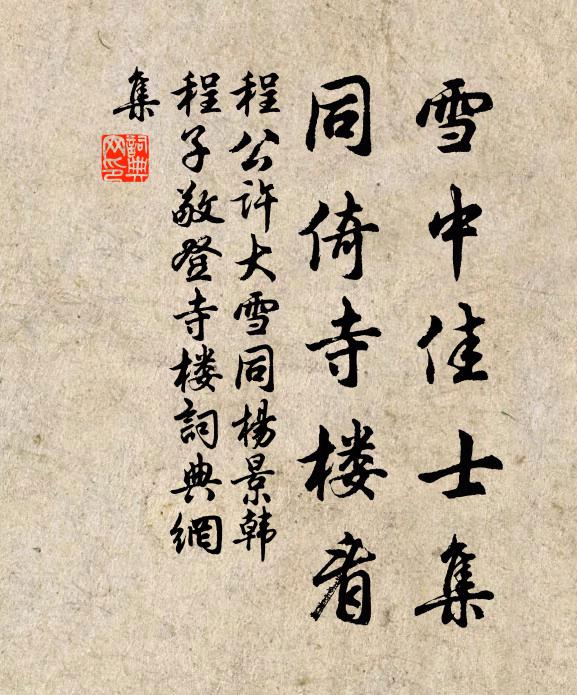 雪中佳士集
同倚寺楼看
程公许大雪同杨景韩
程子敬登寺楼詞典網
集
詞典網印